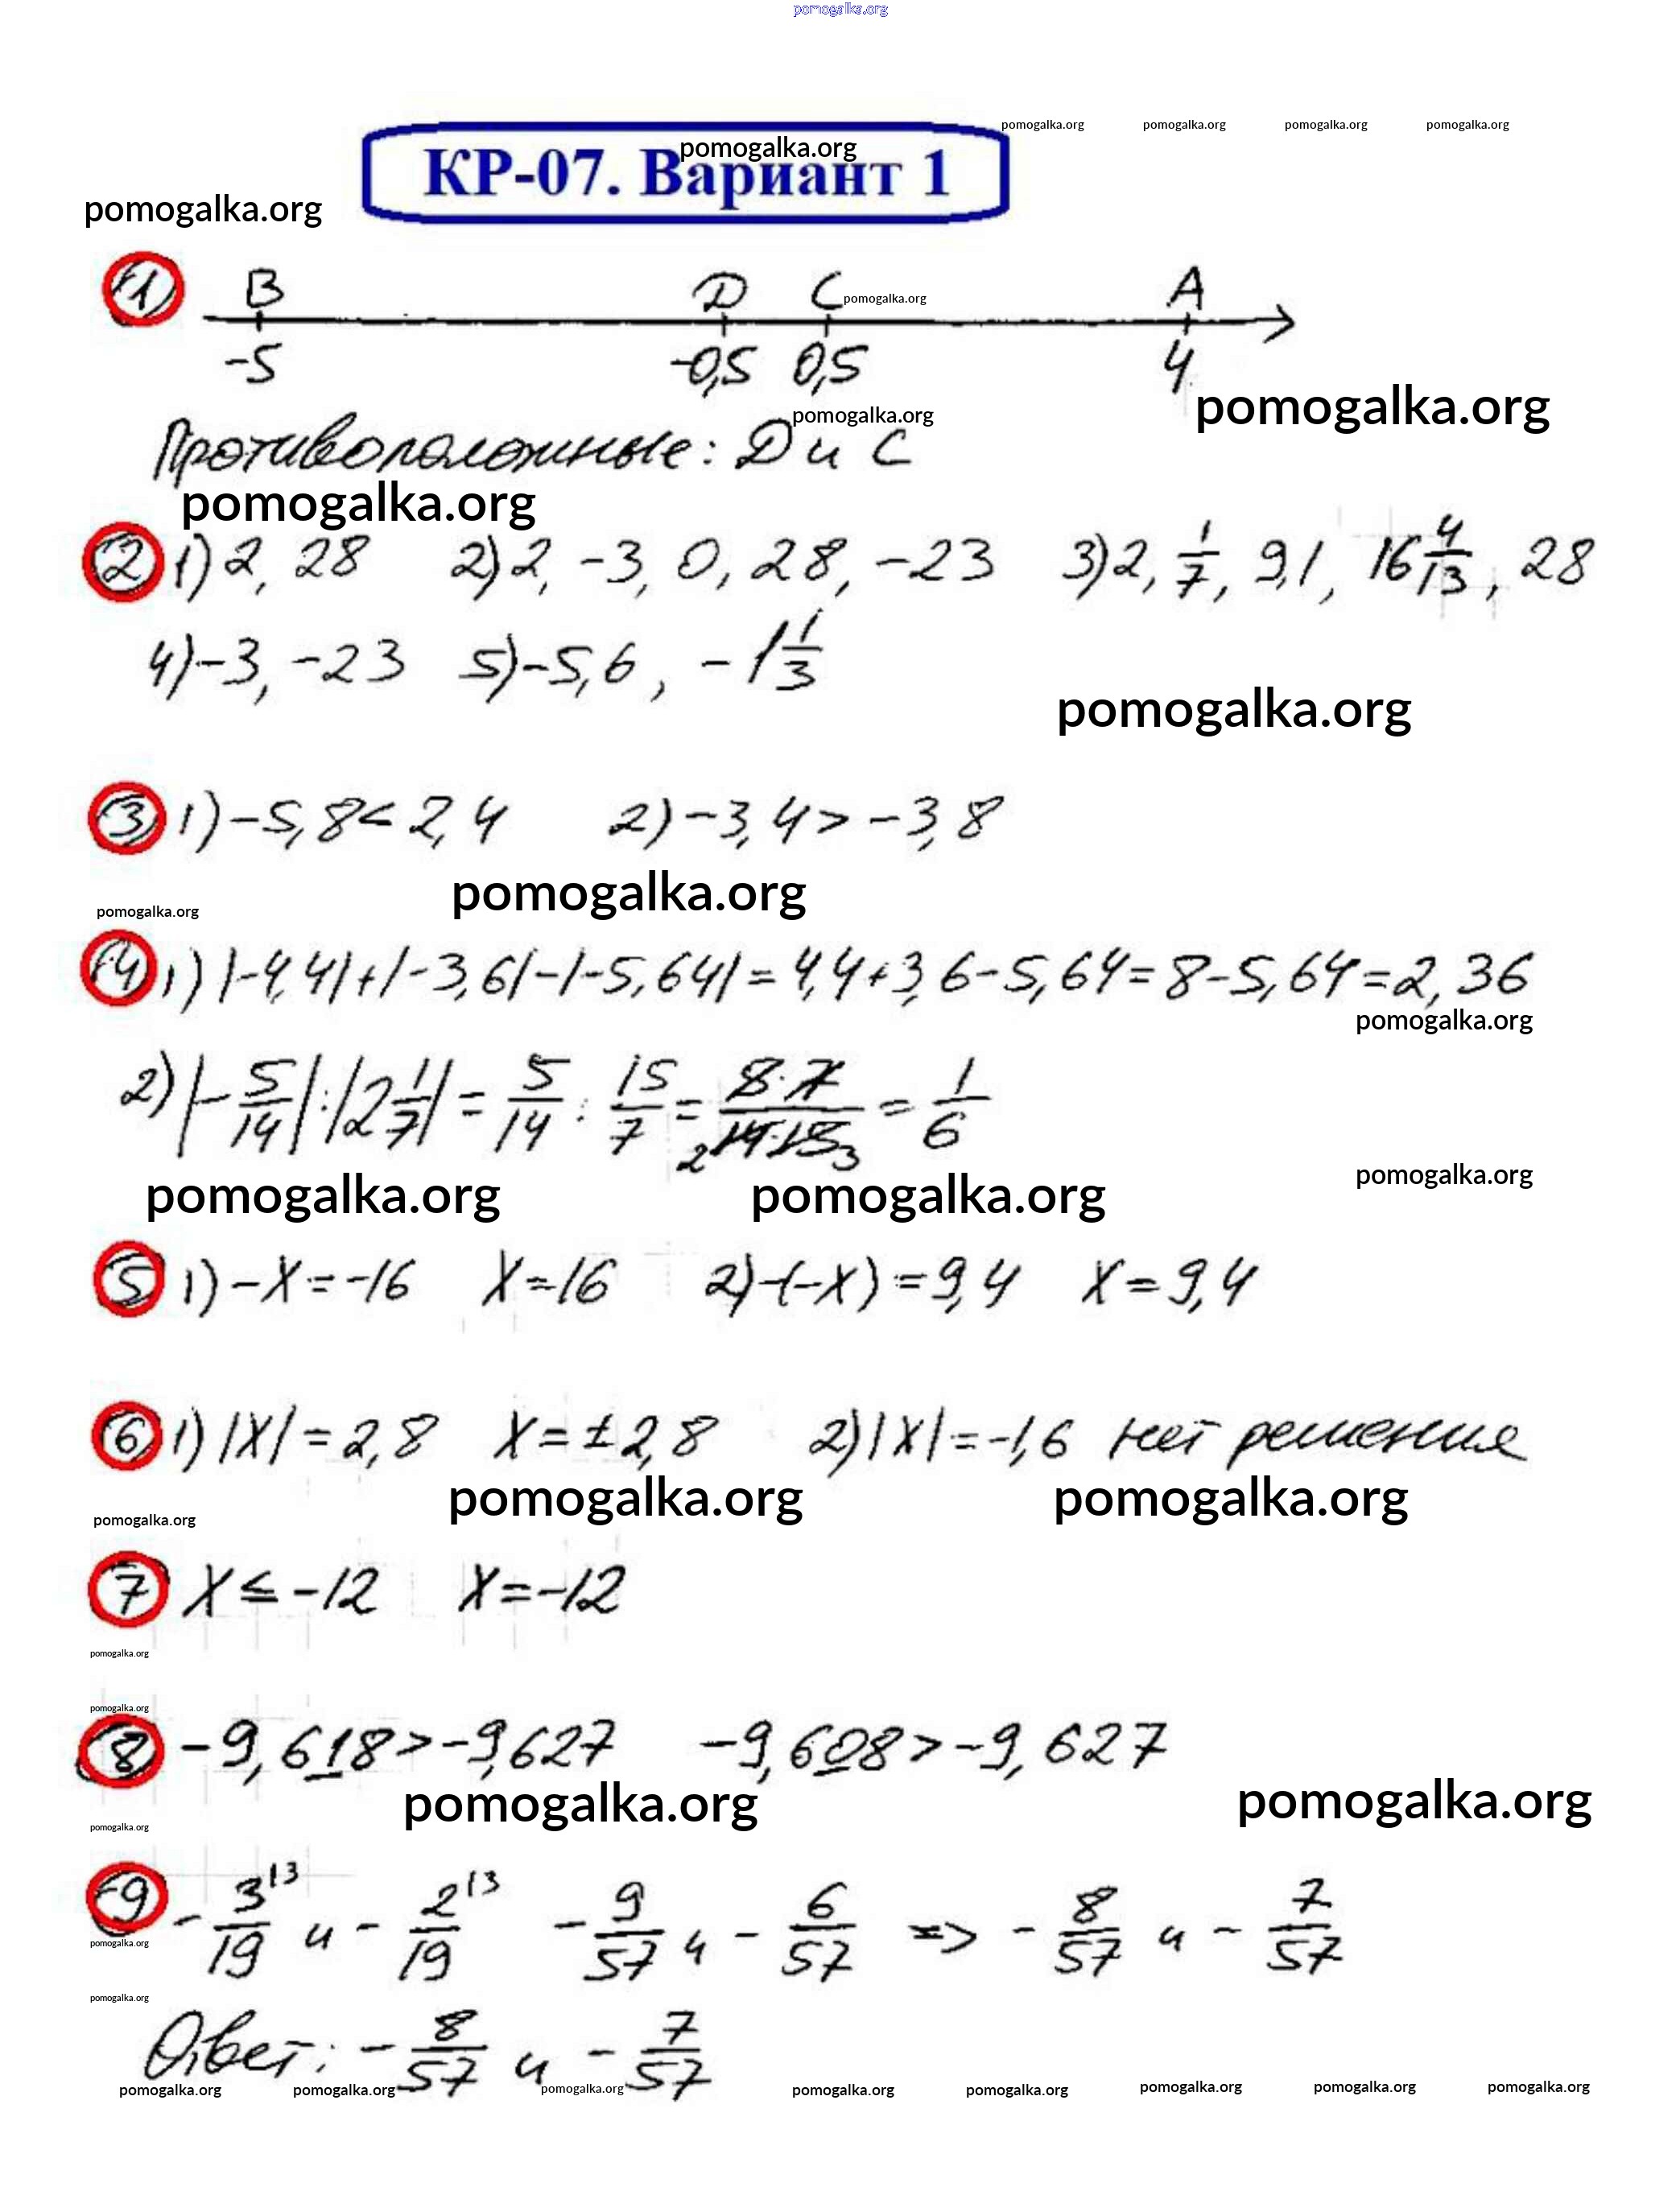 pomogalka.org
pomogalka.org pomogalka.org pomogalka.org pomogalka.org
pomogalka.org
КР-07. Вариант 1
pomogalka.org
1 B D C A
pomogalka.org
-5 -0,5 0,5 4
pomogalka.org
pomogalka.org
Противоположные: D и C
pomogalka.org
2 1) 2, 28 2) 2, -3, 0, 28, -23 3) 2, 1/7, 9,1, 16 4/13, 28
4) -3, -23 5) -5,6, -1 1/3
pomogalka.org
3 1) -5,8 < 2,4 2) -3,4 > -3,8
pomogalka.org
pomogalka.org
4 1) |-4,4| + |-3,6| - |-5,64| = 4,4 + 3,6 - 5,64 = 8 - 5,64 = 2,36
pomogalka.org
2) |-5/14| : |2 1/7| = 5/14 : 15/7 = 8·7/14·15 2 3 = 1/6
pomogalka.org
pomogalka.org pomogalka.org
5 1) -X = -16 X = 16 2) -(-X) = 9,4 X = 9,4
6 1) |X| = 2,8 X = ±2,8 2) |X| = -1,6 нет решения
pomogalka.org pomogalka.org
pomogalka.org
7 X ≤ -12 X = -12
pomogalka.org
pomogalka.org
8 -9,618 > -9,627 -9,608 > -9,627
pomogalka.org pomogalka.org
pomogalka.org
9 -3/19 |3 и -2/19 |3 -9/57 и -6/57 => -8/57 и -7/57
pomogalka.org
pomogalka.org
Ответ: -8/57 и -7/57
pomogalka.org pomogalka.org pomogalka.org pomogalka.org pomogalka.org pomogalka.org pomogalka.org pomogalka.org